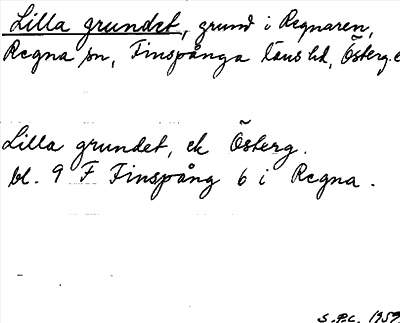 Lilla grundet, grund i Regnaren,
Regna sn, Finspånga läns hd, Österg.
Lilla grundet, ek Österg.
bl. 9 F Finspång 6 i Regna.
S.P.C. 1959